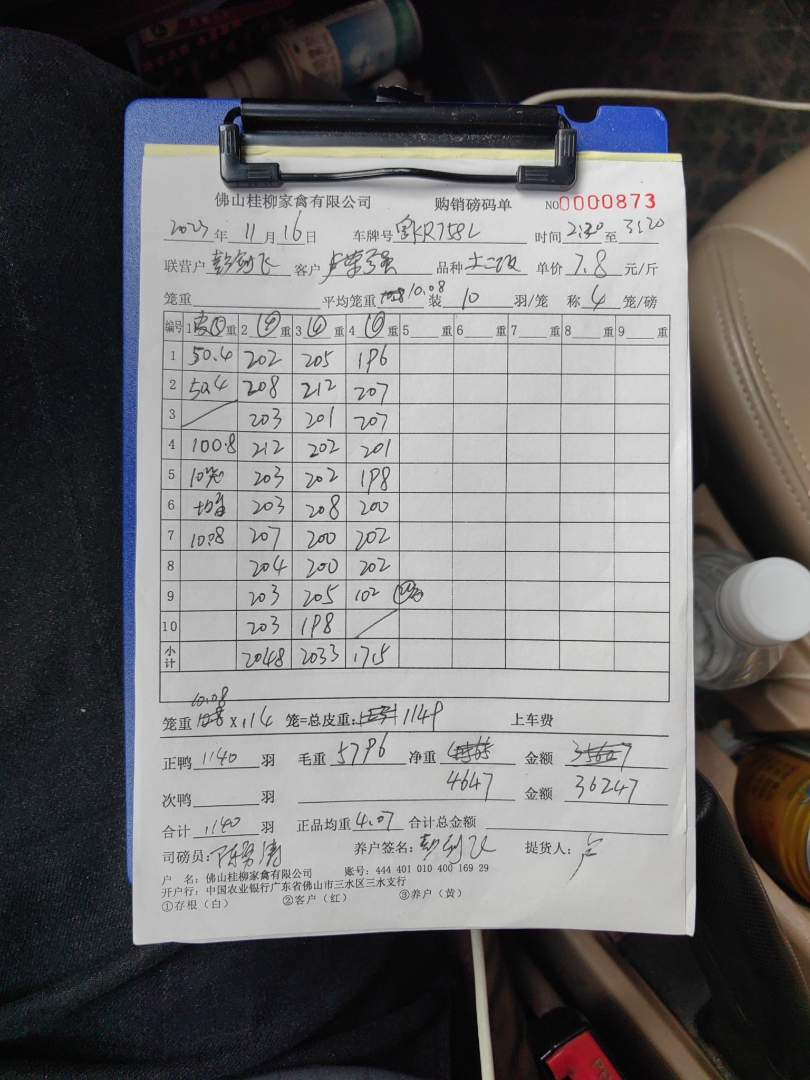 佛山桂柳家禽有限公司 购销磅码单 NO0000873
2023年 11月16日 车牌号 R758L 时间 2:30 至 3:20
联营户 彭剑飞 客户 卢荣强 品种 土二 单价 7.8 元/斤
笼重 平均笼重 10.08 装 10 羽/笼 称 4 笼/磅
编号 1 皮⑤重 2 ④重 3 ④重 4 ④重 5 重 6 重 7 重 8 重 9 重
1 50.4 202 205 196
2 50.4 208 212 207
3 203 201 207
4 100.8 212 202 201
5 10笼 203 202 198
6 均重 203 208 200
7 10.08 207 200 202
8 204 200 202
9 203 205 102
10 203 198
小计 2048 2033 1715
10.08
笼重 x 114 笼=总皮重: 1149 上车费
正鸭 1140 羽 毛重 5796 净重 金额
次鸭 羽 4647 金额 36247
合计 1140 羽 正品均重 4.07 合计总金额
司磅员: 养户签名: 彭剑飞 提货人: 卢
户 名: 佛山桂柳家禽有限公司 账号: 444 401 010 400 169 29
开户行: 中国农业银行广东省佛山市三水区三水支行
①存根(白) ②客户(红) ③养户(黄)